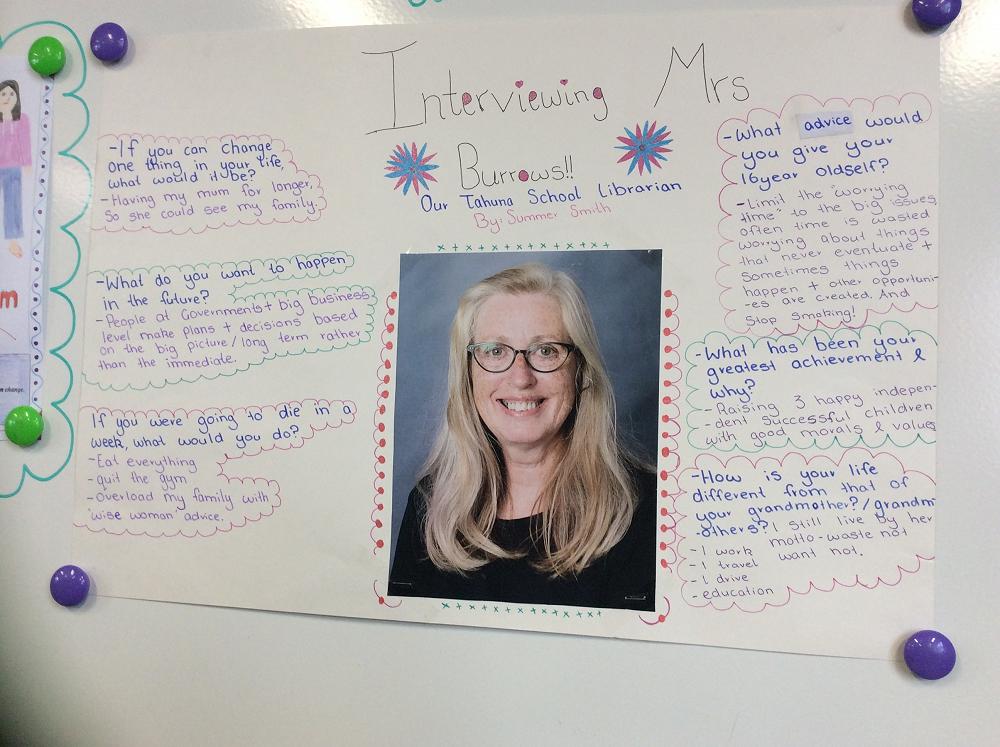 Interviewing Mrs
Burrows!!
Our Tahuna School Librarian
By: Summer Smith
-If you can change
one thing in your life,
what would it be?
-Having my mum for longer,
So she could see my family.
-What do you want to happen
in the future?
-People at Governments + big business
level make plans + decisions based
on the big picture/long term rather
than the immediate.
If you were going to die in a
week, what would you do?
-Eat everything
-quit the gym
-Overload my family with
"wise woman" advice.
-What advice would
you give your
16year oldself?
-Limit the "worrying
time" to the big issues,
often time is wasted
worrying about things
that never eventuate +
sometimes things
happen + other opportuni-
-es are created. And
Stop Smoking!
-What has been your
greatest achievement &
why?
-Raising 3 happy indepen-
-dent successful children
with good morals & values
-How is your life
different from that of
your grandmother?/grandm
-others? I still live by her
-I work motto-waste not
-I travel want not.
-I drive
-education
m
n change.